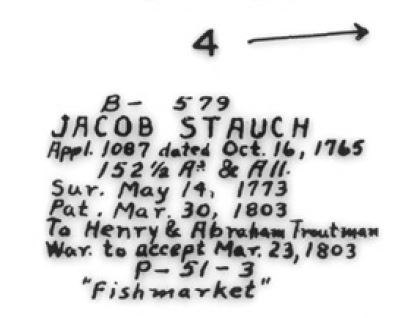 4
B- 579
JACOB STAUCH
Appl. 1087 dated Oct. 16, 1765
152 1/2 As & All.
Sur. May 14, 1773
Pat. Mar. 30, 1803
To Henry & Abraham Troutman
War. to accept Mar. 23, 1803
P-51-3
"Fishmarket"